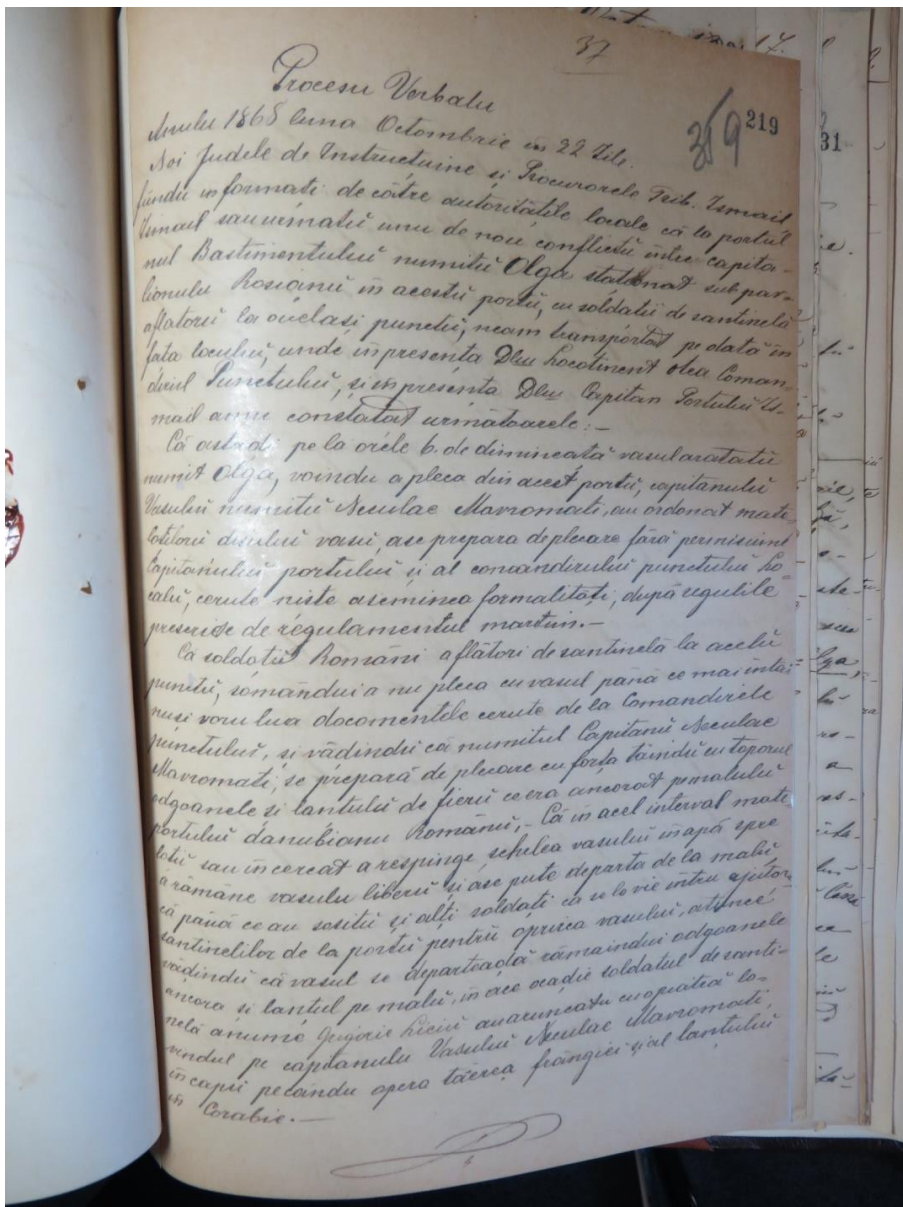 37
219
359
31
Procesu Verbalu
Anulu 1868 luna Octombrie in 22 Zile.
Noi Judele de Instrucțiune și Procurorele Trib. Ismail
fiindu informați de către autoritățile locale că la portul
Ismail sau urmatŭ unu de nou conflictŭ intre capita-
nul Bastimentuluĭ numitŭ Olga staționat sub pav-
lionulu Rosianŭ in acestŭ portŭ, cu soldatiĭ de santinelă
aflatoriĭ la același punctŭ, neam transportat pe dată in
fața loculuĭ, unde in presența Dluĭ Locotinent Coman-
dirul Punctuluĭ, și in presența Dluĭ Capitan Portuluĭ Is-
mail amu constatat următoarele:—
Că astadĭ pe la orele 6. de dimineață vasul aratatŭ
numit Olga, voindu a pleca din acest portŭ, capitanuluĭ
Vasuluĭ numitŭ Neculae Mavromati, au ordonat mate-
loțiloru disuluĭ vasŭ, ase prepara de plecare fără permisiunea
Capitanuluĭ portuluĭ și al comandiruluĭ punctuluĭ lo-
calŭ, cerute niste aseminea formalitățĭ, după regulile
prescrise de regulamentul maritim.—
Că soldațiĭ Românĭ aflătorĭ de santinelă la acelŭ
punctŭ, somăndui a nu pleca cu vasul până ce mai intăi
nusi voru lua docomentele cerute de la Comandirele
punctuluĭ, și vădindŭ că numitul Capitanŭ Neculae
Mavromati, se prepară de plecare cu forța tăindŭ cu toporul
odgoanele si lantuluĭ de fierŭ ce era ancorat pe maluluĭ
portuluĭ danubianu Românŭ,— Că in acel interval mate-
loții sau incercat a respinge schelea vasuluĭ in apă spre
a rămăne vasulu liberŭ și ase pute departa de la malŭ
că până ce au sositŭ și alțĭ soldațĭ ca se le vie intru ajutoru
santinelilor de la portŭ pentru oprirea vasuluĭ, atunce
vădindŭ că vasul se departeadă rămaindŭ odgoanele
ancora și lanțul pe malŭ, in ace ocazie soldatul de santi-
nelă anume Grigorie au aruncatu cu o piatră lo-
vindul pe capitanulu Vasuluĭ Neculae Mavromati,
in capŭ pecăndu opera tăerea frăngieĭ și al lanțuluĭ
in Corabie.—